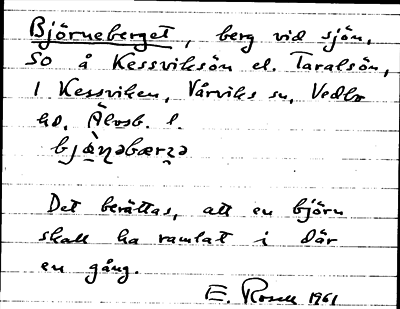 Björneberget, berg vid sjön,
SO å Kessviksön el. Taralsön,
i Kessviken, Vårviks sn, Vedbo
hd, Älvsb. l.
Det berättas, att en björn
skall ha ramlat i där
en gång.
E. Rosell 1961